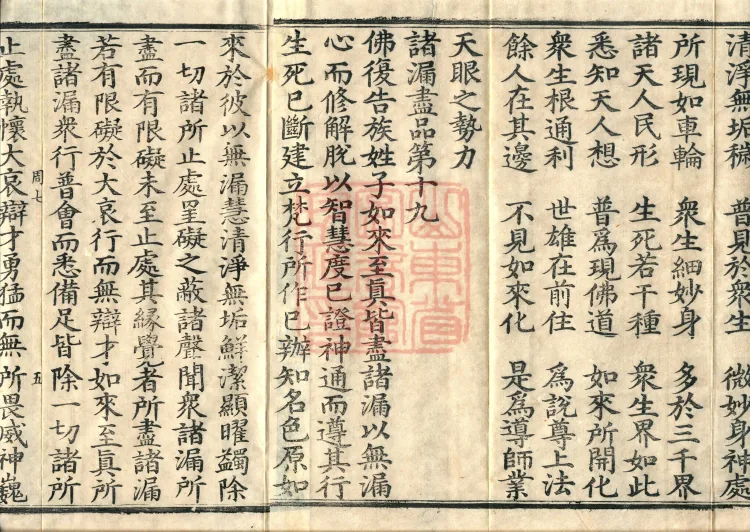 清淨無垢穢　普見於衆生　微妙身神處
所現如車輪　衆生細妙身　多於三千界
諸天人民形　生死若干種　衆生界如此
悉知天人想　普爲現佛道　如來所開化
衆生根通利　世雄在前住　爲說尊上法
餘人在其邊　不見如來化　是爲導師業
天眼之勢力
諸漏盡品第十九
佛復告族姓子如來至眞皆盡諸漏以無漏
心而修解脫以智慧度已證神通而遵其行
生死已斷建立梵行所作已辦知名色原如
來於彼以無漏慧清淨無垢鮮潔顯曜蠲除
一切諸所止處罣礙之蔽諸聲聞衆諸漏所
盡而有限礙未至止處其緣覺者所盡諸漏
若有限礙於大哀行而無辯才如來至眞所
盡諸漏衆行普會而悉備足皆除一切諸所
周七　五
止處執懷大哀辯才勇猛而無所畏威神巍
山東省